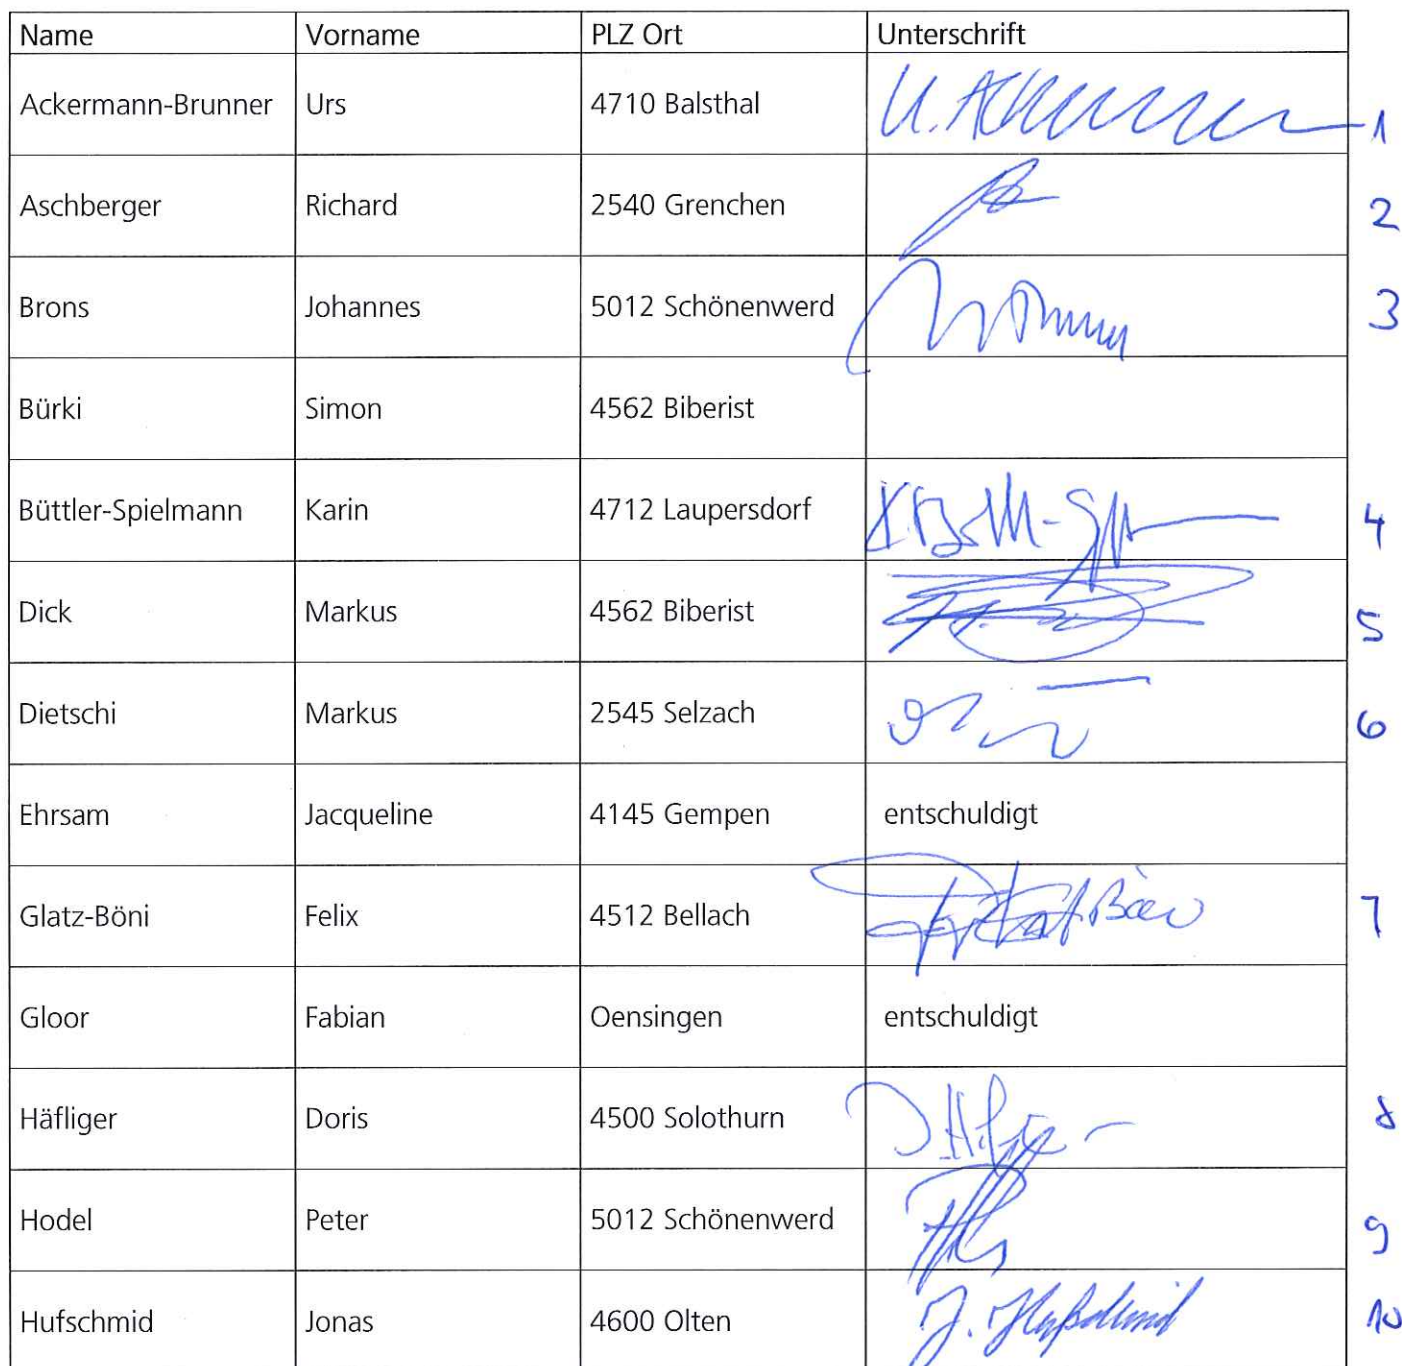 Name Vorname PLZ Ort Unterschrift
Ackermann-Brunner Urs 4710 Balsthal U. Ackermann 1
Aschberger Richard 2540 Grenchen 2
Brons Johannes 5012 Schönenwerd 3
Bürki Simon 4562 Biberist
Büttler-Spielmann Karin 4712 Laupersdorf 4
Dick Markus 4562 Biberist 5
Dietschi Markus 2545 Selzach 6
Ehrsam Jacqueline 4145 Gempen entschuldigt
Glatz-Böni Felix 4512 Bellach 7
Gloor Fabian Oensingen entschuldigt
Häfliger Doris 4500 Solothurn 8
Hodel Peter 5012 Schönenwerd 9
Hufschmid Jonas 4600 Olten J. Hufschmid 10